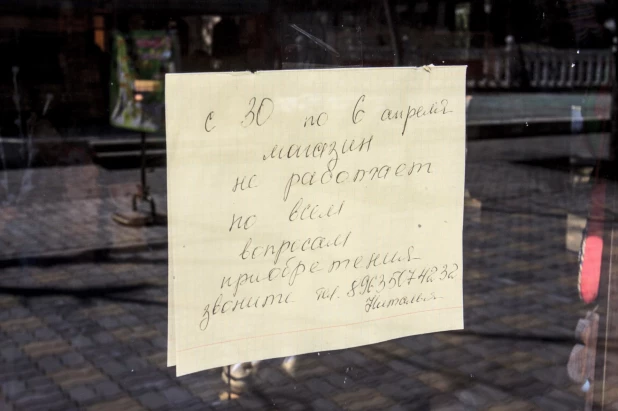 с 30 по 6 апреля
магазин
не работает
по всем
вопросам
приобретения
звоните тел. 89635674232
Наталья